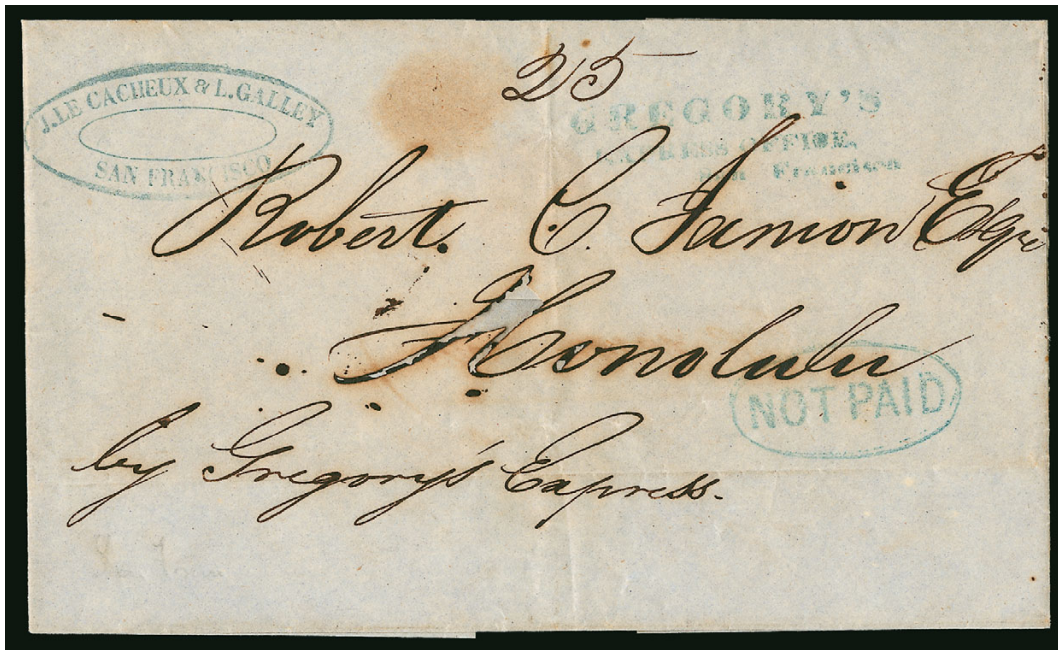 25
J. LE CACHEUX & L. GALLEY
SAN FRANCISCO
GREGORY'S
EXPRESS OFFICE,
San Francisco
Robert. C. Janion Esqre
Honolulu
NOT PAID
by Gregory's Express.